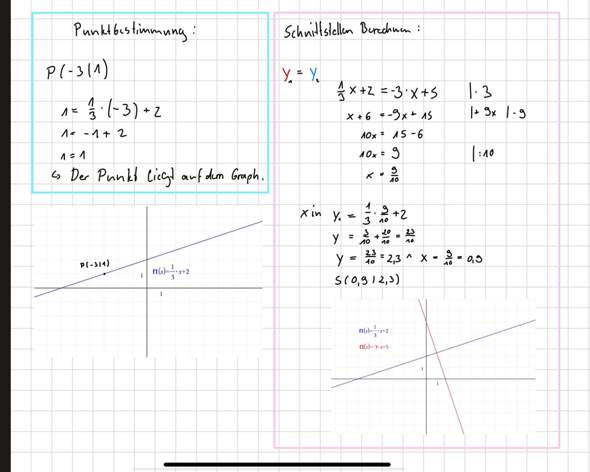 Punktbestimmung:
P(-3|1)
1 = 1/3 · (-3) + 2
1 = -1 + 2
1 = 1
↳ Der Punkt liegt auf dem Graph.
P(-3|1)
f1(x)=1/3·x+2
1
1
Schnittstellen Berechnen:
y₁ = y₂
1/3 x + 2 = -3·x + 5 |·3
x + 6 = -9x + 15 |+ 9x |- 9
10x = 15 - 6
10x = 9 |:10
x = 9/10
x in y₁ = 1/3 · 9/10 + 2
y = 3/10 + 20/10 = 23/10
y = 23/10 = 2,3 ^ x = 9/10 = 0,9
S(0,9|2,3)
f1(x)=1/3·x+2
f2(x)=-3·x+5
1
1